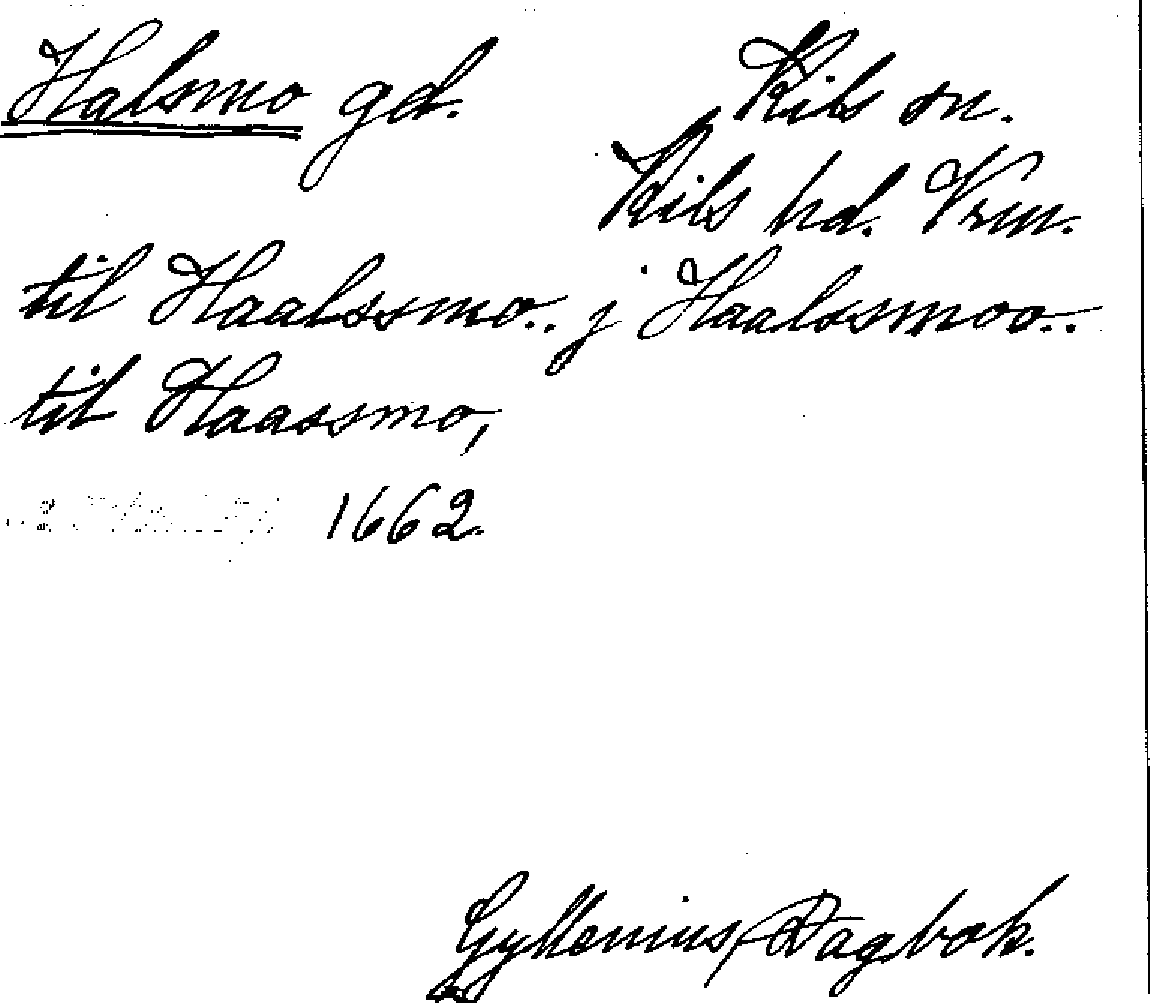 Halsmo gd. Kils sn.
Kils hd. Vrm.
til Haalssmo.. j Haalssmoo..
til Haassmo,
1662.
Gyllenius, Dagbok.